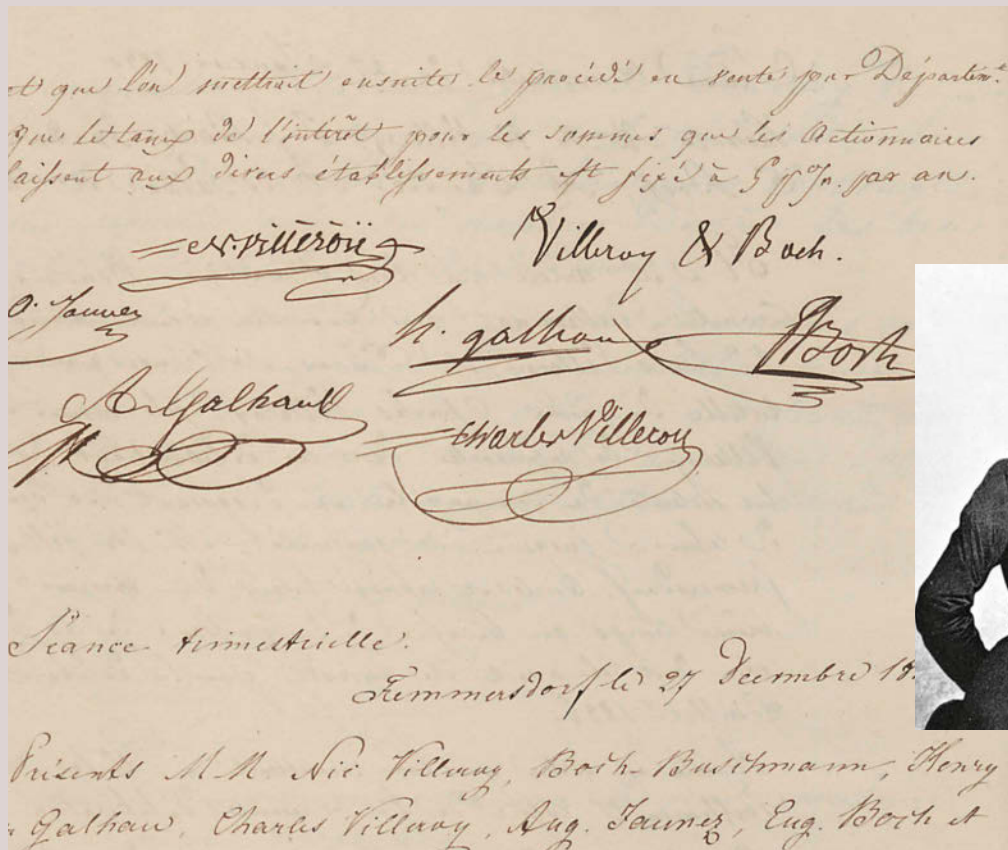 et que l'on mettrait ensuite le procédé en vente par Départemt
que le taux de l'intérêt pour les sommes que les Actionnaires
laissent aux divers établissements est fixé à 5 p% par an.
N. Villeroy Villeroy & Boch.
A. Jaunez h. galhau Boch
A. Galhau Charles Villeroy
Séance trimestrielle.
Fremmersdorf le 27 Décembre 18
Présents M M Nic Villeroy, Boch-Buschmann, Henry
Galhau, Charles Villeroy, Aug. Jaunez, Eug. Boch et